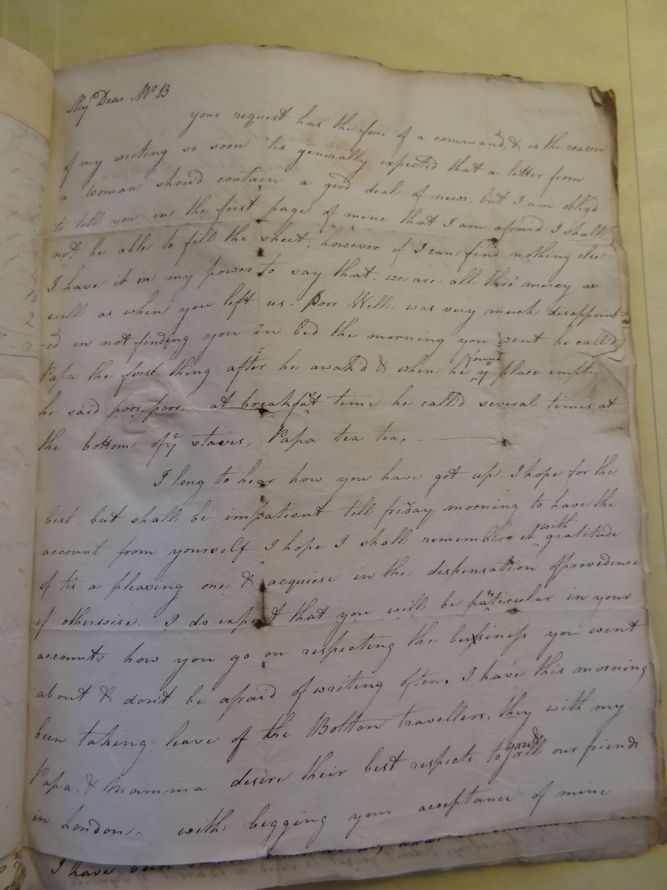 My Dear Mr B
your request has the force of a command, & is the reason
of my writing so soon 'tis generally expected that a letter from
a woman should contain a good deal of news, but I am oblig'd
to tell you in the first page of mine that I am afraid I shall
not be able to fill the sheet; however if I can find nothing else
I have it in my power to say that we are all this morng as
well as when you left us. Poor Will was very much disappoint
-ed in not finding you in bed the morning you went he call'd
Papa the first thing after he awak'd & when he found ye place empty
he said poor, poor, at breakfast time he call'd several times at
the bottom of ye stairs, Papa tea tea,
I long to hear how you have got up I hope for the
best but shall be impatient till friday morning to have the
account from yourself I hope I shall remember it with gratitude
if tis a pleasing one & acquiese in the dispensation of providence
if otherwise. I do expect that you will be particular in your
accounts how you go on respecting the business you went
about & dont be afraid of writing often, I have this morning
been taking leave of the Bolton travellers, they with my
Papa, & Mamma desire their best respects to you & all our friends
in London, with begging your acceptance of mine
I have been